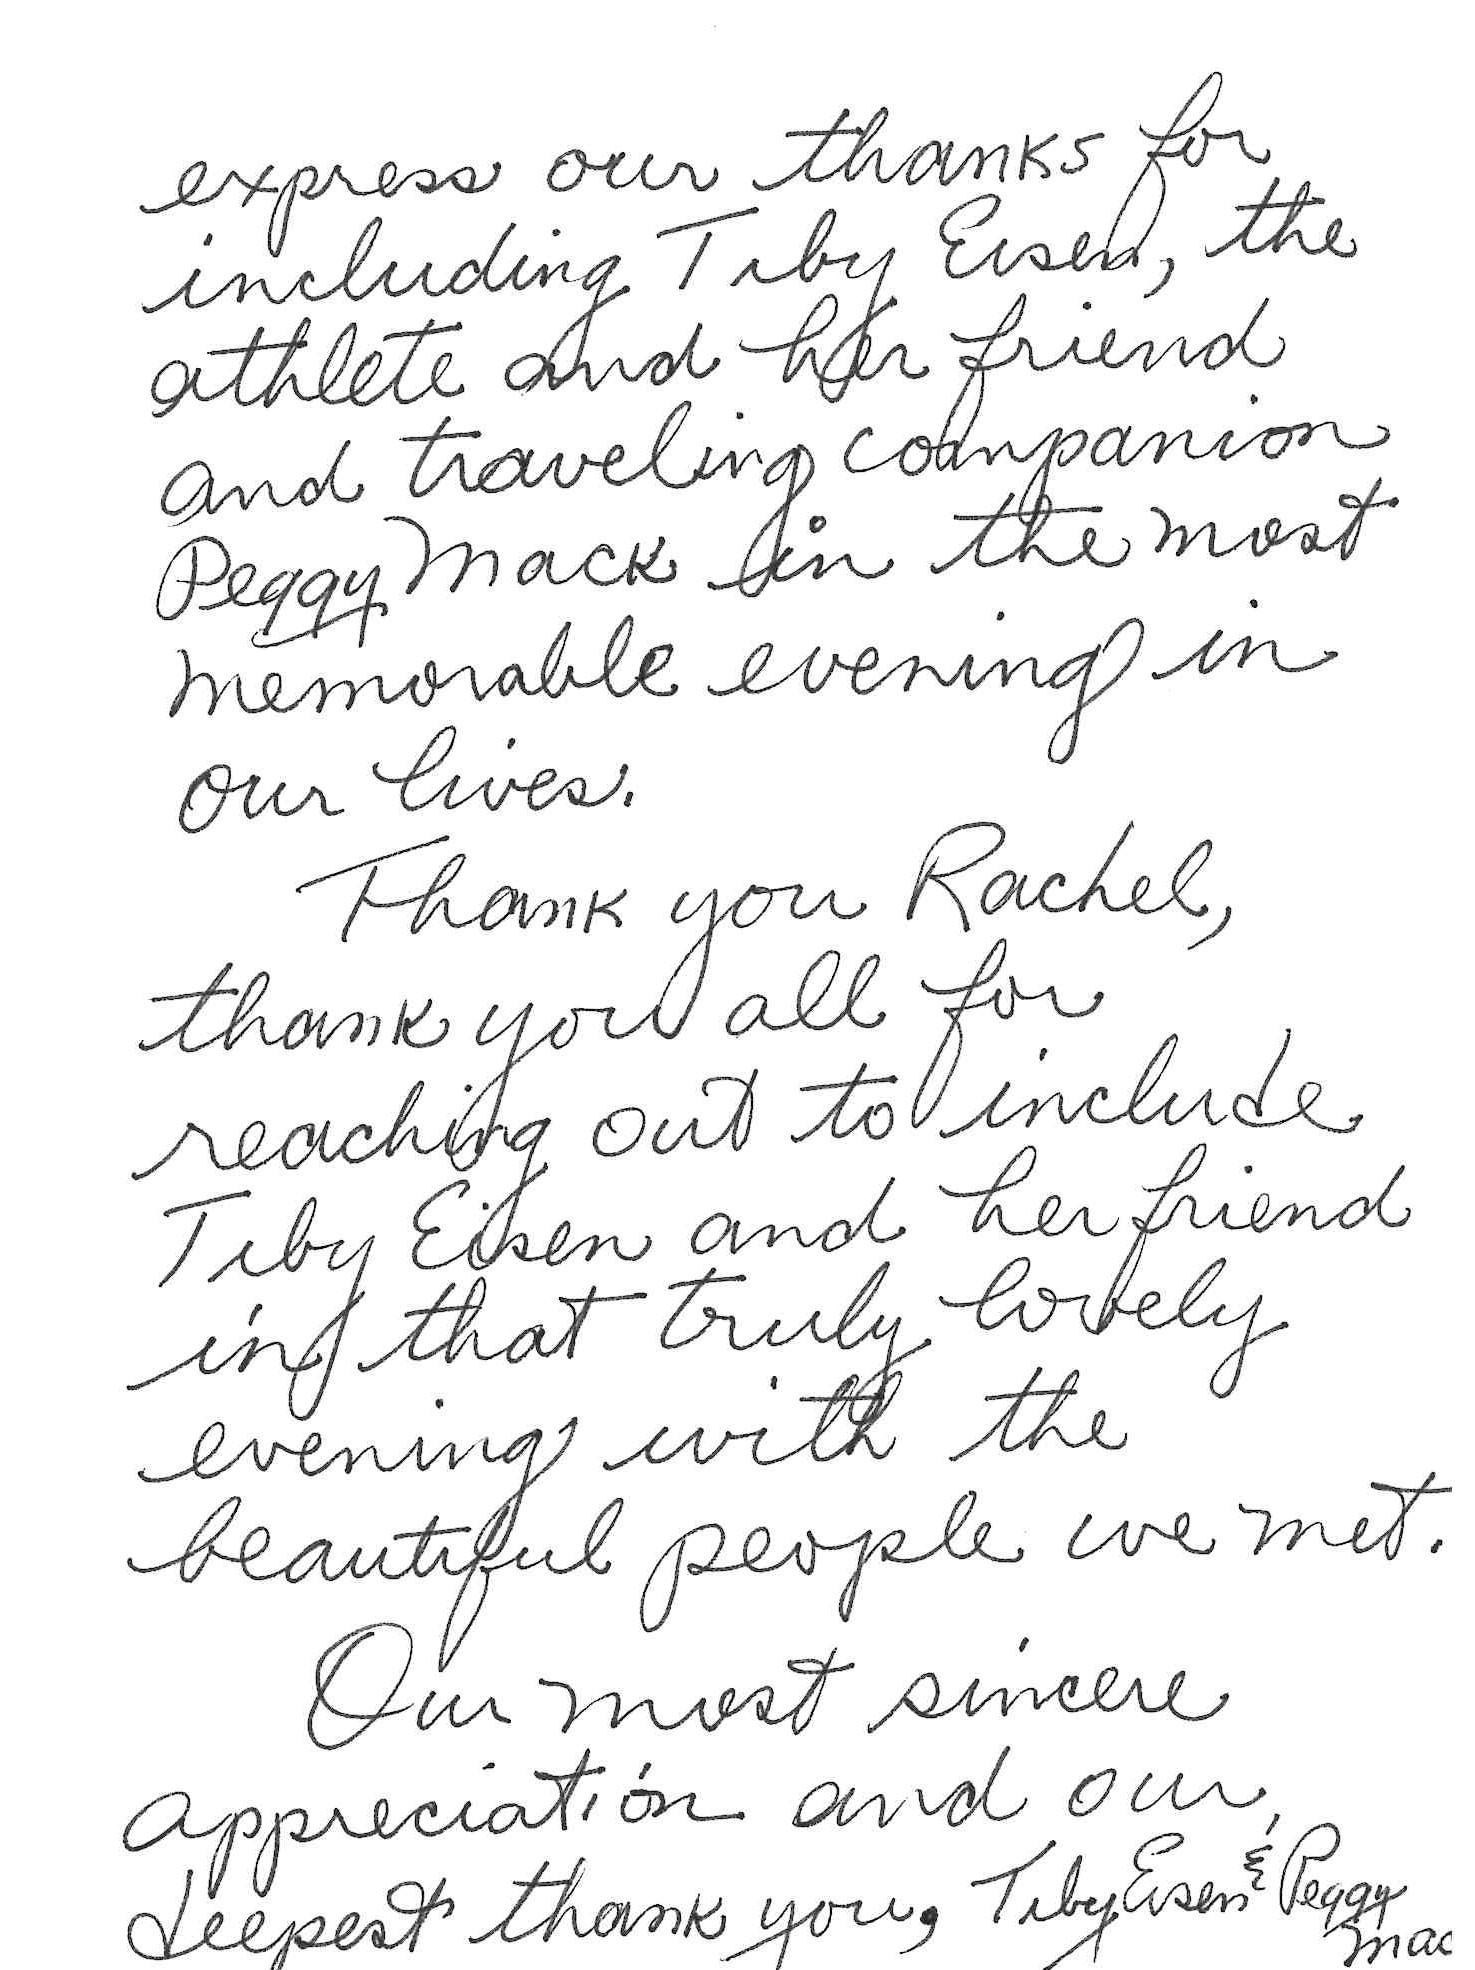 express our thanks for
including Tiby Eisen, the
athlete and her friend
and traveling companion
Peggy Mack in the most
memorable evening in
our lives.
Thank you Rachel,
thank you all for
reaching out to include
Tiby Eisen and her friend
in that truly lovely
evening with the
beautiful people we met.
Our most sincere
appreciation and our
deepest thank you, Tiby Eisen & Peggy
Mac